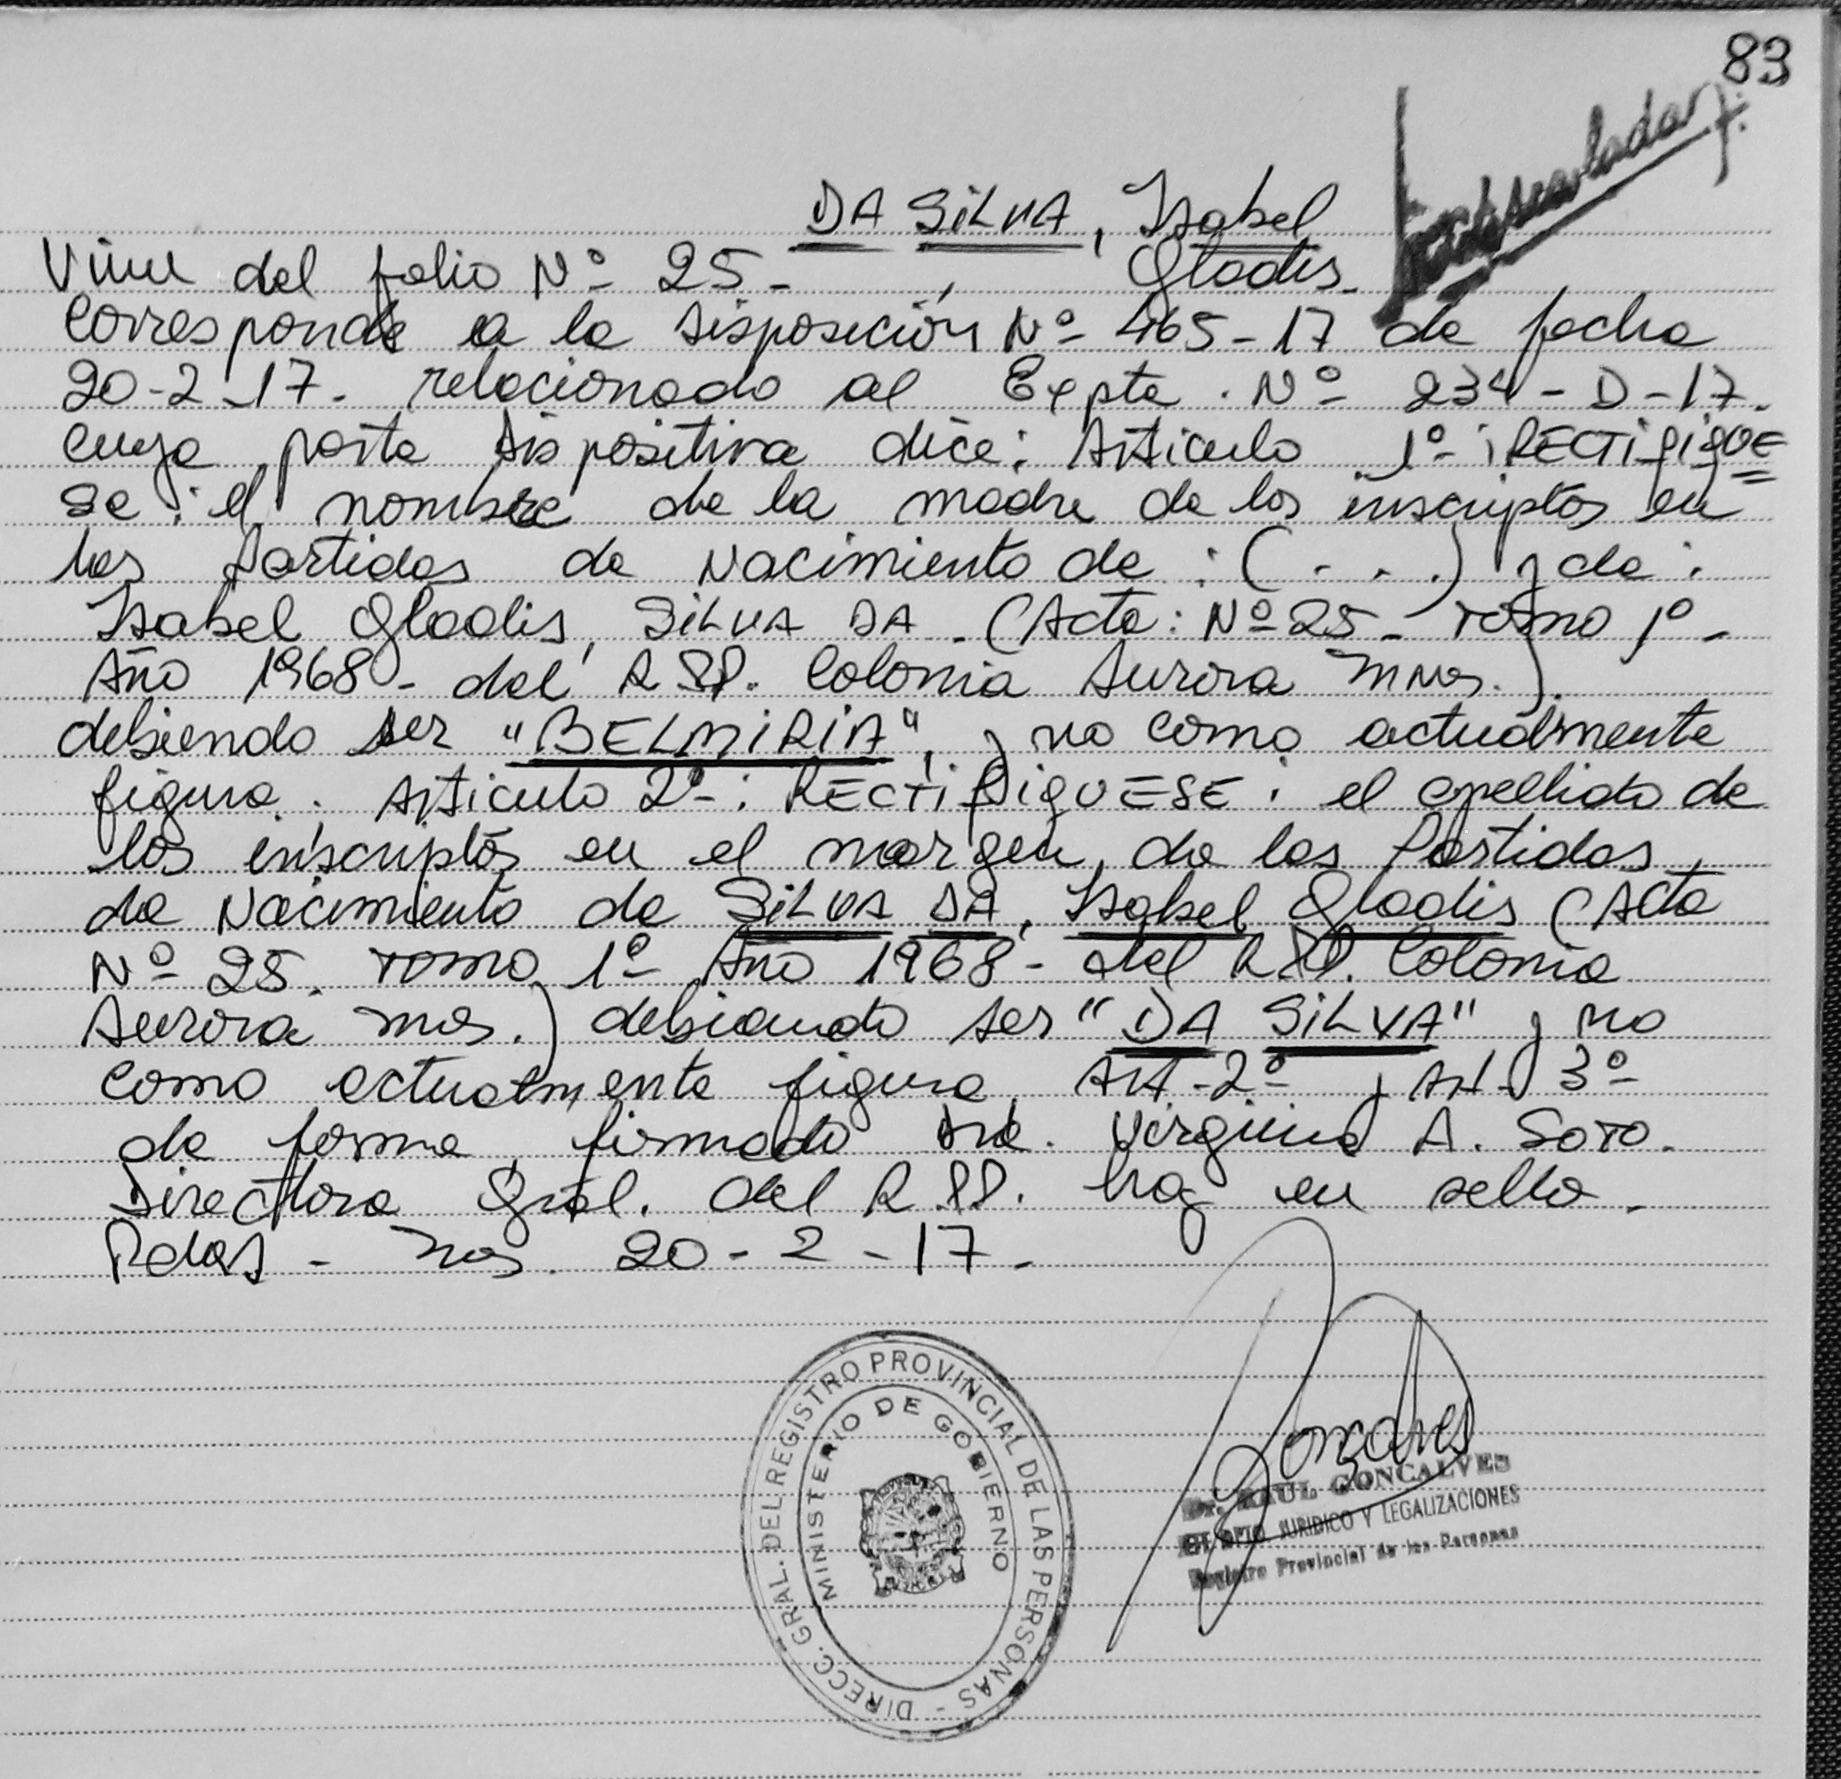 83
DA SILVA, Isabel
Viene del folio Nº 25 - , Gladis.
Corresponde a la Disposición Nº 465-17 de fecha
20-2-17. relacionado al Expte. Nº 234-D-17.
cuya parte dispositiva dice: Artículo 1º: RECTIFIQUE
se: el nombre de la madre de los inscriptos en
las Partidas de Nacimiento de: (...) y de:
Isabel Gladis, SILVA DA - (Acta: Nº 25 - Tomo 1º -
Año 1968 - del R.PP. Colonia Aurora Mnes.).
debiendo ser "BELMIRIA", y no como actualmente
figura. Artículo 2º: RECTIFIQUESE: el apellido de
los inscriptos en el margen de las Partidas
de Nacimiento de SILVA DA, Isabel Gladis (Acta
Nº 25. Tomo 1º Año 1968 - del R.PP. Colonia
Aurora Mnes.) debiendo ser "DA SILVA" y no
como actualmente figura. Art-2º y Art-3º
de forma, firmado Virginia A. Soto.
Directora Gral. del R.PP. hay un sello.
Pdas - Mnes. 20-2-17.
DIRECC. GRAL. DEL REGISTRO PROVINCIAL DE LAS PERSONAS -
MINISTERIO DE GOBIERNO
Dr. RAUL GONCALVES
DPTO JURIDICO Y LEGALIZACIONES
Registro Provincial de las Personas